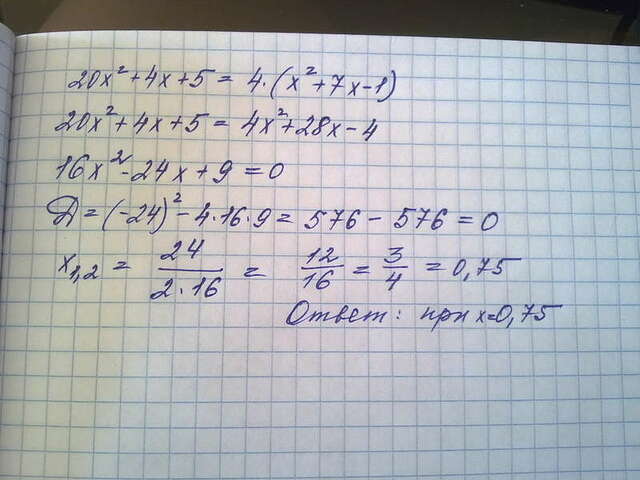 20x² + 4x + 5 = 4·(x² + 7x - 1)
20x² + 4x + 5 = 4x² + 28x - 4
16x² - 24x + 9 = 0
Д = (-24)² - 4·16·9 = 576 - 576 = 0
x₁,₂ = 24/(2·16) = 12/16 = 3/4 = 0,75
Ответ: при x=0,75